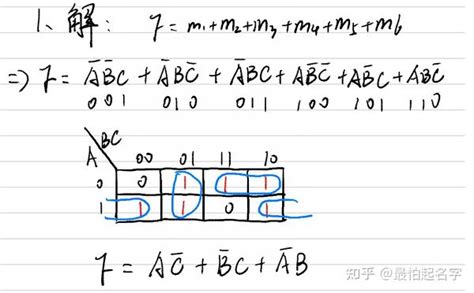 1、解: F=m₁+m₂+m₃+m₄+m₅+m6
=> F= A̅B̅C + A̅BC̅ + A̅BC + AB̅C̅ + AB̅C + ABC̅
001 010 011 100 101 110
BC
A 00 01 11 10
0 0 1 1 1
1 1 1 0 1
F = AC̅ + B̅C + A̅B
知乎 @最怕起名字